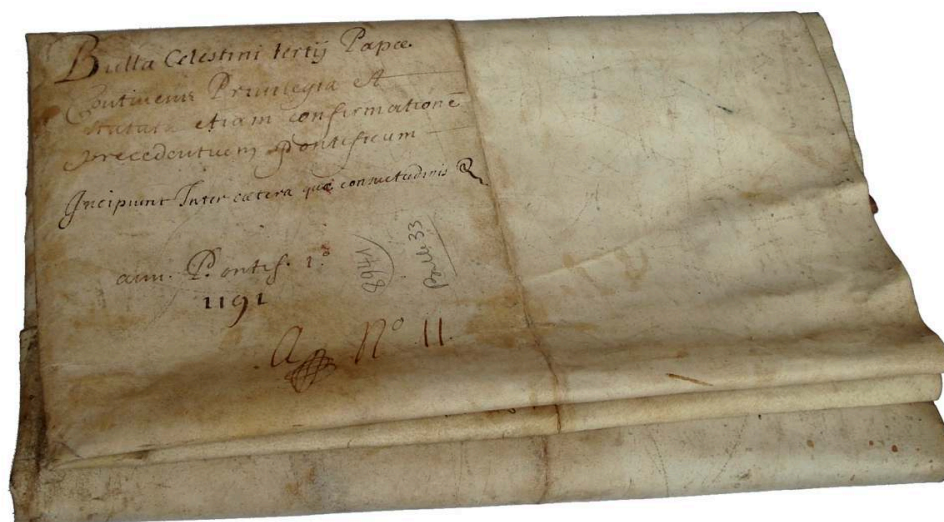 Bulla Celestini tertij Papæ
Continens Privilegia et
statuta etiam confirmationē
precedentium Pontificum
Incipiunt Inter cætera quæ consuetudinis
ann. Pontif. 1.º
1191
A Nº 11.
8941